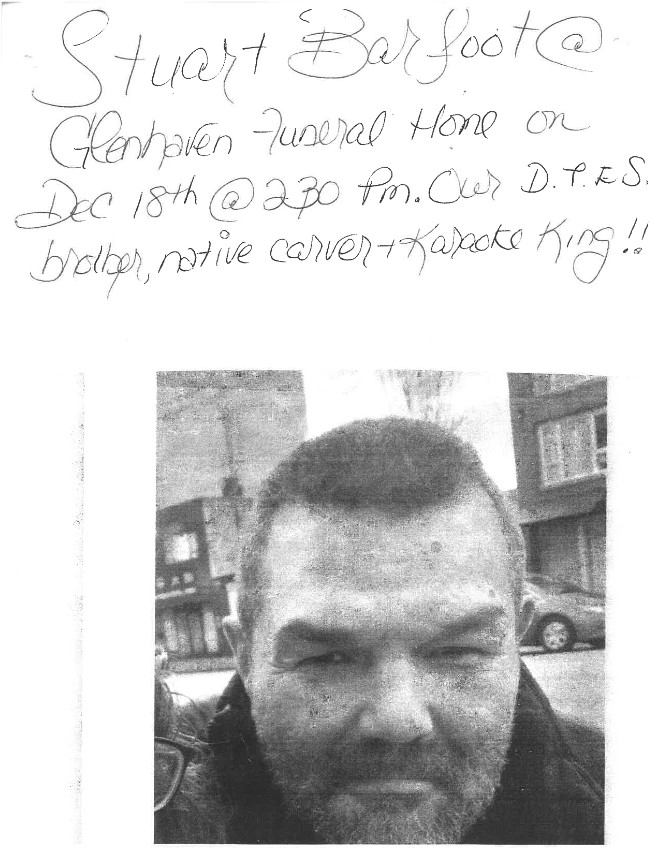 Stuart Barfoot @
Glenhaven Funeral Home on
Dec 18th @ 230 Pm. Our D.T.E.S.
brother, native carver + Karaoke King!!